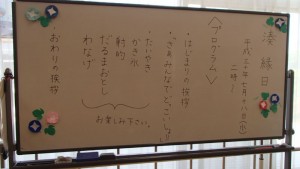 湊縁日
平成三十年七月十八日(水)
二時〜
〈プログラム〉
・はじまりの挨拶
・さあみんなでどっこいしょ!!
・たいやき
かき氷
射的
だるまおとし
わなげ
お楽しみ下さい。
おわりの挨拶